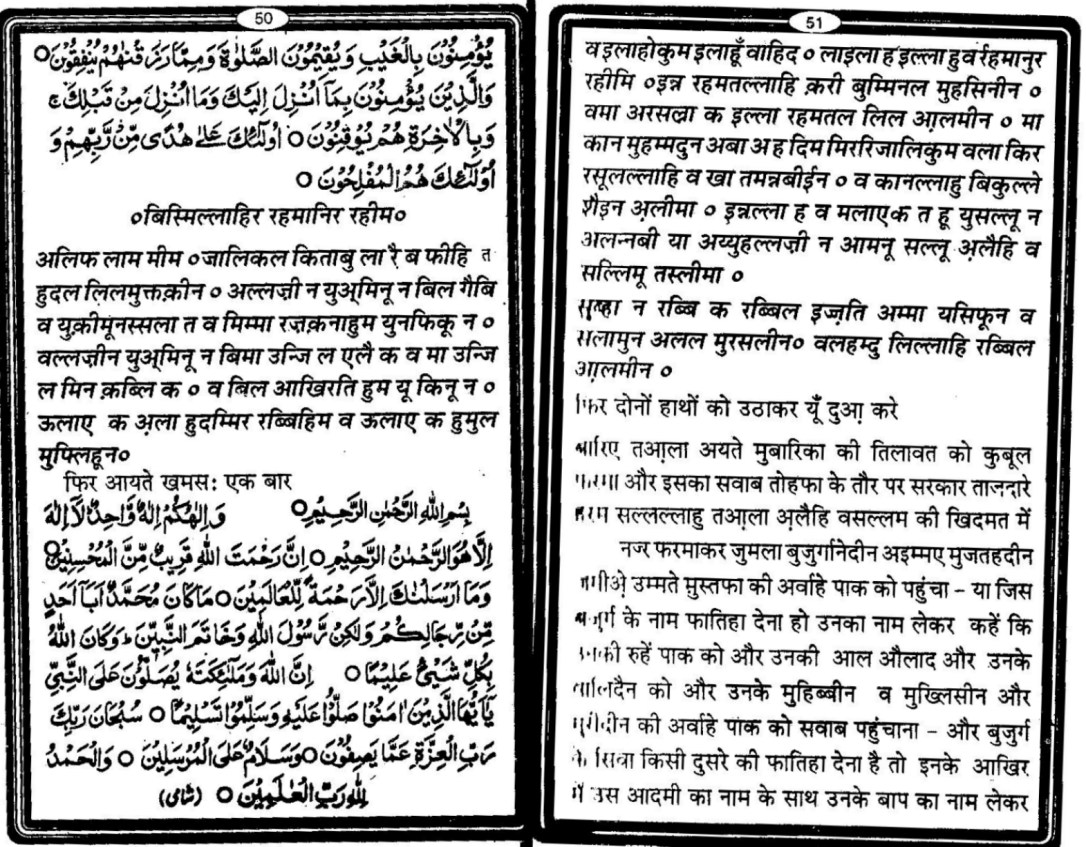 50
يُؤْمِنُوْنَ بِالْغَيْبِ وَيُقِيْمُوْنَ الصَّلٰوةَ وَمِمَّا رَزَقْنٰهُمْ يُنْفِقُوْنَ○
وَالَّذِيْنَ يُؤْمِنُوْنَ بِمَا اُنْزِلَ اِلَيْكَ وَمَا اُنْزِلَ مِنْ قَبْلِكَ ج
وَبِالْاٰخِرَةِ هُمْ يُوْقِنُوْنَ ○ اُولٰٓئِكَ عَلٰى هُدًى مِّنْ رَّبِّهِمْ وَ
اُولٰٓئِكَ هُمُ الْمُفْلِحُوْنَ ○
०बिस्मिल्लाहिर रहमानिर रहीम०
अलिफ लाम मीम ०जालिकल किताबु ला रै ब फीहि त
हुदल लिलमुत्तक़ीन ० अल्लज़ी न युअ्मिनू न बिल गैबि
व युक़ीमूनस्सला त व मिम्मा रज़क़नाहुम युनफिकू न ०
वल्लज़ीन युअ्मिनू न बिमा उन्जि ल एलै क व मा उन्जि
ल मिन क़ब्लि क ० व बिल आखिरति हुम यू किनू न ०
ऊलाए क अ़ला हुदम्मिर रब्बिहिम व ऊलाए क हुमुल
मुफ्लिहून०
फिर आयते खमस: एक बार
بِسْمِ اللهِ الرَّحْمٰنِ الرَّحِيْمِ○ وَاِلٰهُكُمْ اِلٰهٌ وَّاحِدٌ لَآ اِلٰهَ
اِلَّا هُوَ الرَّحْمٰنُ الرَّحِيْمُ ○ اِنَّ رَحْمَتَ اللهِ قَرِيْبٌ مِّنَ الْمُحْسِنِيْنَ○
وَمَا اَرْسَلْنٰكَ اِلَّا رَحْمَةً لِّلْعَالَمِيْنَ ○ مَاكَانَ مُحَمَّدٌ اَبَآ اَحَدٍ
مِّنْ رِّجَالِكُمْ وَلٰكِنْ رَّسُوْلَ اللهِ وَخَاتَمَ النَّبِيّٖنَ ط وَكَانَ اللهُ
بِكُلِّ شَيْئٍ عَلِيْمًا ○ اِنَّ اللهَ وَمَلٰٓئِكَتَهٗ يُصَلُّوْنَ عَلَى النَّبِيِّ
يٰٓاَيُّهَا الَّذِيْنَ اٰمَنُوْا صَلُّوْا عَلَيْهِ وَسَلِّمُوْا تَسْلِيْمًا ○ سُبْحَانَ رَبِّكَ
رَبِّ الْعِزَّةِ عَمَّا يَصِفُوْنَ ○ وَسَلَامٌ عَلَى الْمُرْسَلِيْنَ ○ وَالْحَمْدُ
لِلّٰهِ رَبِّ الْعٰلَمِيْنَ ○ (شامی)
51
व इलाहोकुम इलाहूँ वाहिद ० लाइला ह इल्ला हुवर्रहमानुर
रहीमि ०इन्न रहमतल्लाहि क़री बुम्मिनल मुहसिनीन ०
वमा अरसल्ना क इल्ला रहमतल लिल आ़लमीन ० मा
कान मुहम्मदुन अबा अ ह दिम मिररिजालिकुम वला किर
रसूलल्लाहि व खा तमन्नबीईन ० व कानल्लाहु बिकुल्ले
शैइन अ़लीमा ० इन्नल्ला ह व मलाएक त हू युसल्लू न
अलन्नबी या अय्युहल्लज़ी न आमनू सल्लू अ़लैहि व
सल्लिमू तस्लीमा ०
सुब्हा न रब्बि क रब्बिल इज़्ज़ति अम्मा यसिफून व
सलामुन अलल मुरसलीन० वलहम्दु लिल्लाहि रब्बिल
आ़लमीन ०
फिर दोनों हाथों को उठाकर यूँ दुआ़ करे
बारिए तआ़ला अयते मुबारिका की तिलावत को कुबूल
फरमा और इसका सवाब तोहफा के तौर पर सरकार ताजदारे
हरम सल्लल्लाहु तआ़ला अ़लैहि वसल्लम की खिदमत में
नज्र फरमाकर जुमला बुजुर्गानेदीन अइम्मए मुजतहदीन
जमीअे़ उम्मते मुस्तफा की अर्वाहे पाक को पहुंचा – या जिस
बुजुर्ग के नाम फातिहा देना हो उनका नाम लेकर कहें कि
उनकी रुहें पाक को और उनकी आल औलाद और उनके
वालिदैन को और उनके मुहिब्बीन व मुख्लिसीन और
मुरीदीन की अर्वाहे पाक को सवाब पहुंचाना – और बुजुर्ग
के सिवा किसी दुसरे की फातिहा देना है तो इनके आखिर
में उस आदमी का नाम के साथ उनके बाप का नाम लेकर